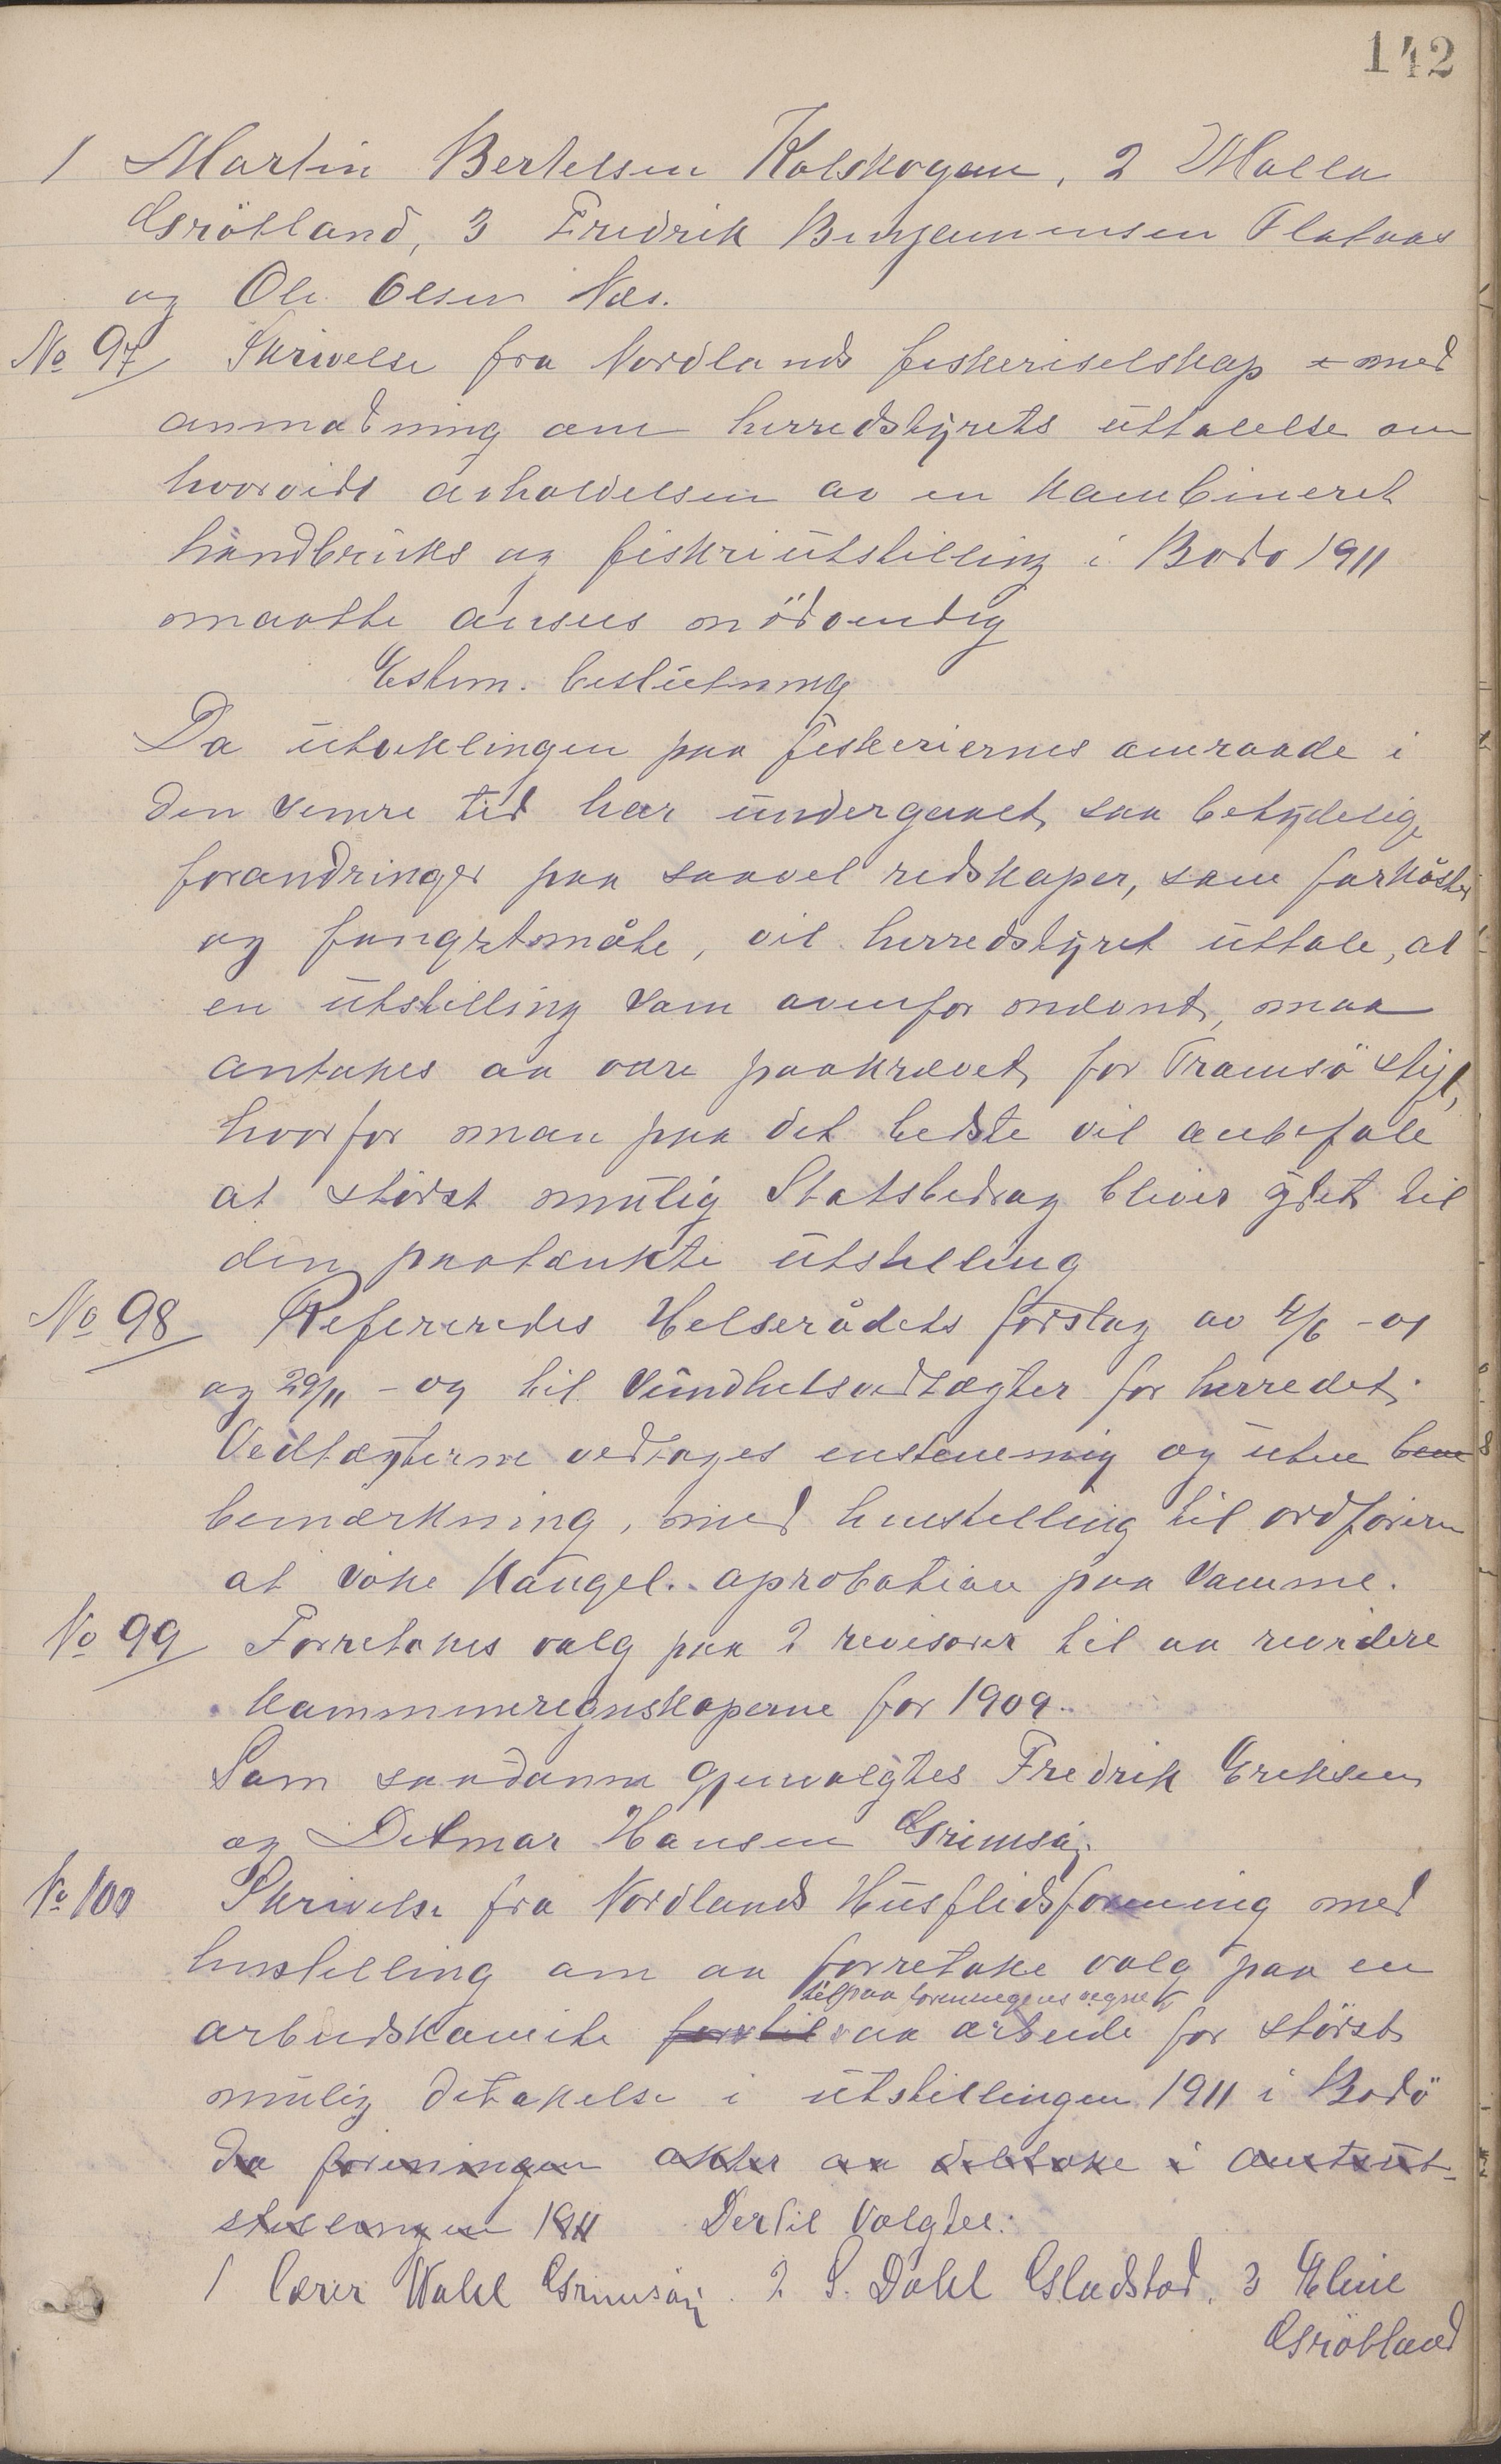 142
1 Martin Bertelsen Kolskogen, 2 Malla
Grötland, 3 Fredrik Benjaminsen Flataas
og Ole Olsen Næs.
No 97 Skrivelse fra Nordlands fiskeriselskap med
anmodning om herredstyrets uttalelse om
hvorvidt avholdelsen av en kombineret
håndbruks og fiskriutstilling i Bodo 1911
maatte ansees nödvendig
Enstem. beslutning
Da utviklingen paa fiskeriernes omraade i
den senere tid har undergaaet saa betydelige
forandringer paa saavel redskaper, som farkoster
og fangstmåte, vil herredstyret uttale, at
en utstilling som ovenfor nævnt, maa
antakes aa være paakrævet for Tromsö stift,
hvorfor man paa det bedste vil anbefale
at störst mulig Statsbedrag bliver ydet til
den paatænkte utstilling
No 98 Refereredes Helserådets forslag av 4/6 - 09
og 29/11 - 09 til Sundhetsvedtægter for herredet.
Vedtægterne vedtages enstemmig og uten bem
bemærkning, med henstilling til ordföreren
at söke Kongel. aprobation paa samme.
No 99 Forretokes valg paa 2 revisorer til aa revidere
kommuneregnskaperne for 1909.
Som saadanne gjenvalgtes Fredrik Eriksen
og Detmar Hansen Grimsöy.
No 100 Skrivelse fra Nordlands Husflidsforening med
henstilling om aa forretake valg paa en
til paa foreningens vegne
arbeidskomite for til aa arbeide for störst
mulig detakelse i utstillingen 1911 i Bodö
da foreningen akter aa deltake i Amtsut-
stillingen 1911 Dertil valgtes:
1 Lærer Wahl Grimsöy. 2 S. Dahl Gladstad, 3 Eline
Grötland